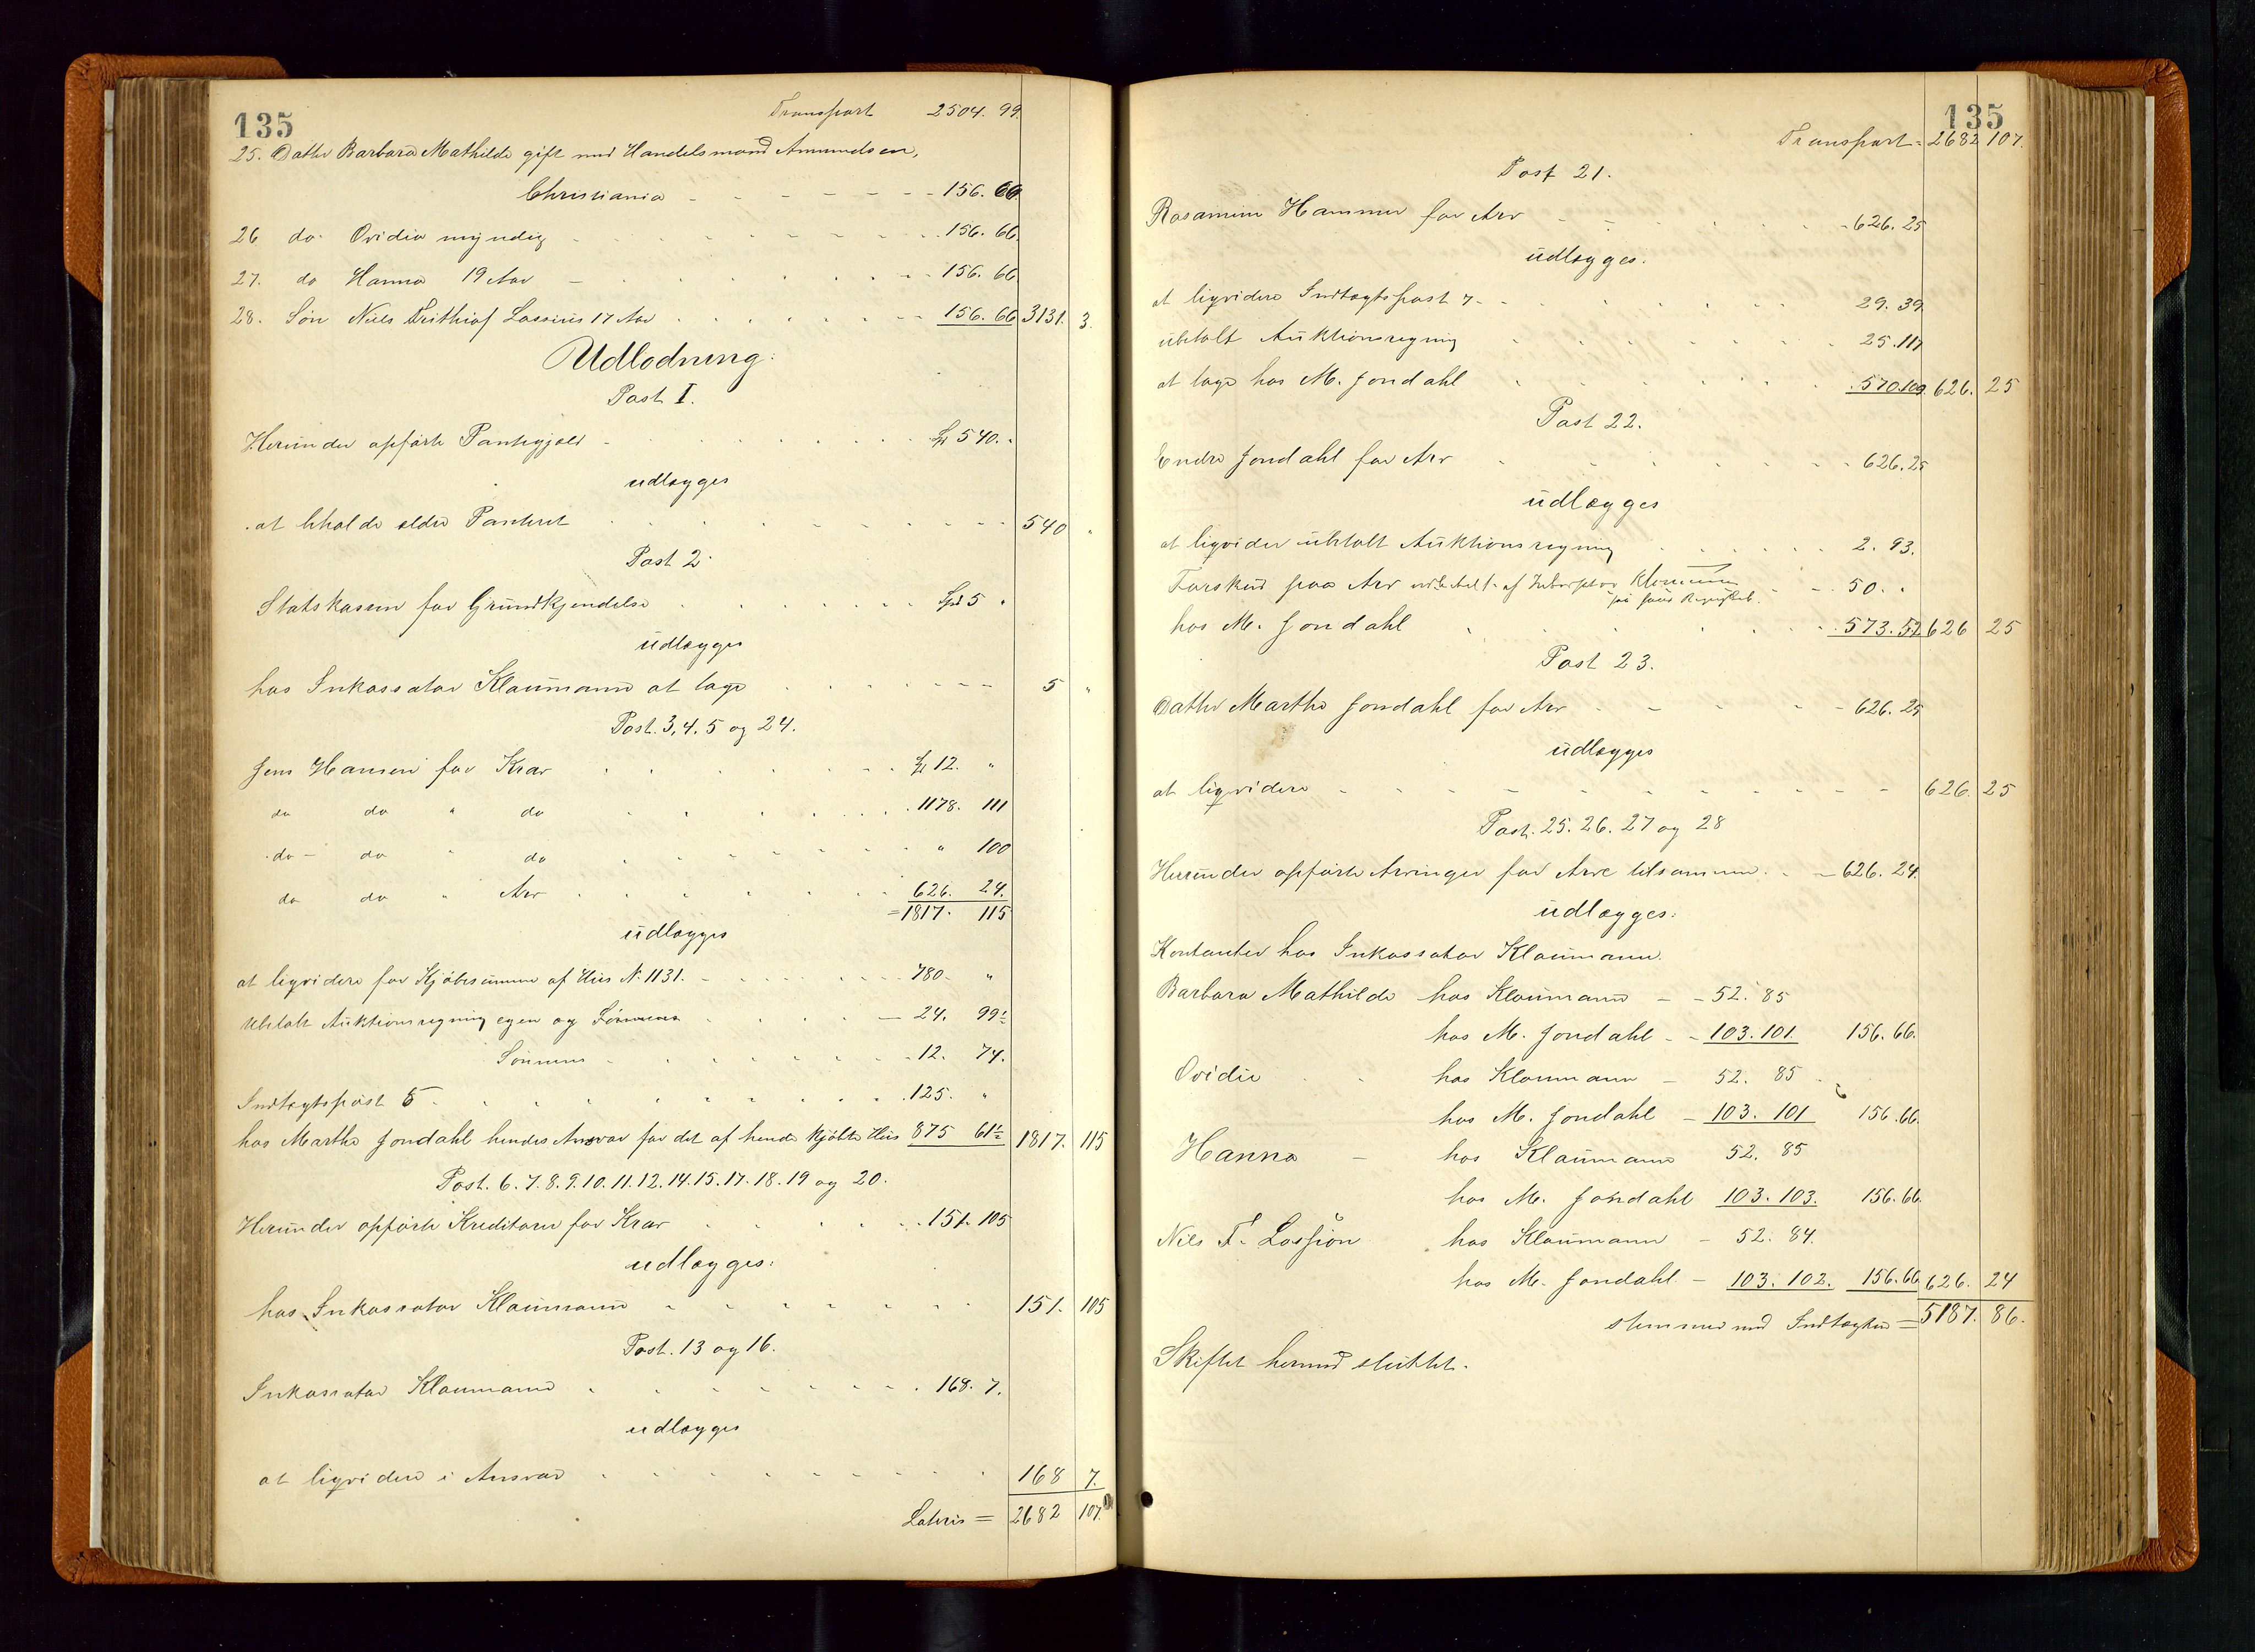 135
Transport 2504. 99.
25. Datter Barbara Mathilde gift med Handelsmand Amundsen,
Christiania - - - - - - 156. 66
26 do. Ovidia myndig - - - - - 156. 66.
27. do Hanna 19 Aar - - - - - 156. 66.
28. Søn Niels Frithiof Lassius 17 Aar - - - - - 156. 66 3131. 3.
Udlodning.
Post I.
Herunder opførte Pantegjæld - - - - - 540. "
udlægges
at beholde ældre Panteret - - - - - 540 "
Post 2.
Statskassen for Grundkjendelse - - - - - Spd 5 "
udlægges
hos Inkassator Klaumann at tage - - - - - 5 "
Post. 3, 4. 5 og 24.
Jens Hansen for Krav - - - - - 12. "
do do " do - - - - - 1178. 111
do - do " do - - - - - " 100
do do " Arv - - - - - 626. 24.
= 1817. 115
udlægges
at liqvidere for Kjøbesumme af Hus N. 1131. - - - - - 780. "
ubetalt Auktionsregning egen og Sønnens - - - - - 24. 99½
Sønnens - - - - - 12. 74.
Indtægtspost 5 - - - - - 125. "
hos Marthe Jondahl hendes Ansvar for det af hende kjøbte Hus 875 61½ 1817. 115
Post. 6. 7. 8. 9. 10. 11. 12. 14. 15. 17. 18. 19 og 20.
Herunder opførte Kreditorer for Krav - - - - - 151. 105
udlægges:
hos Inkassator Klaumann - - - - - 151. 105
Post. 13 og 16.
Inkassator Klaumann - - - - - 168. 7.
udlægges
at liqvidere i Ansvar - - - - - 168 7.
Lateris = 2682 107.
135
Transport = 2682 107.
Post 21.
Rosamine Hammer for Arv - - - - - 626. 25
udlægges.
at liqvidere Indtægtspost 7 - - - - - 29. 39.
ubetalt Auktionsregning - - - - - 25. 117
at tage hos M. Jondahl - - - - - 570. 109. 626. 25
Post 22.
Endre Jondahl for Arv - - - - - 626. 25
udlægges
at liqvidere ubetalt Auktionsregning - - - - - 2. 93.
Forskud paa Arv udbetalt af Klaumann - - 50. "
hos M. Jondahl - - - - - 573. 52 626 25
Post 23.
Datter Marthe Jondahl for Arv - - - - - 626. 25
udlægges
at liqvidere - - - - - 626. 25
Post. 25. 26. 27 og 28
Herunder opførte Arvinger for Arv tilsammen - - 626. 24.
udlægges:
Kontanter hos Inkassator Klaumann.
Barbara Mathilde hos Klaumann - - 52. 85
hos M. Jondahl - - 103. 101. 156. 66.
Ovidie hos Klaumann - 52. 85
hos M. Jondahl - 103. 101 156. 66.
Hanna - hos Klaumann 52. 85
hos M. Jondahl 103. 103. 156. 66.
Niels F. Lassion hos Klaumann - 52. 84.
hos M. Jondahl - 103. 102. 156. 66 626. 24
stemmer med Indtægten = 5187. 86.
Skiftet hermed sluttet.